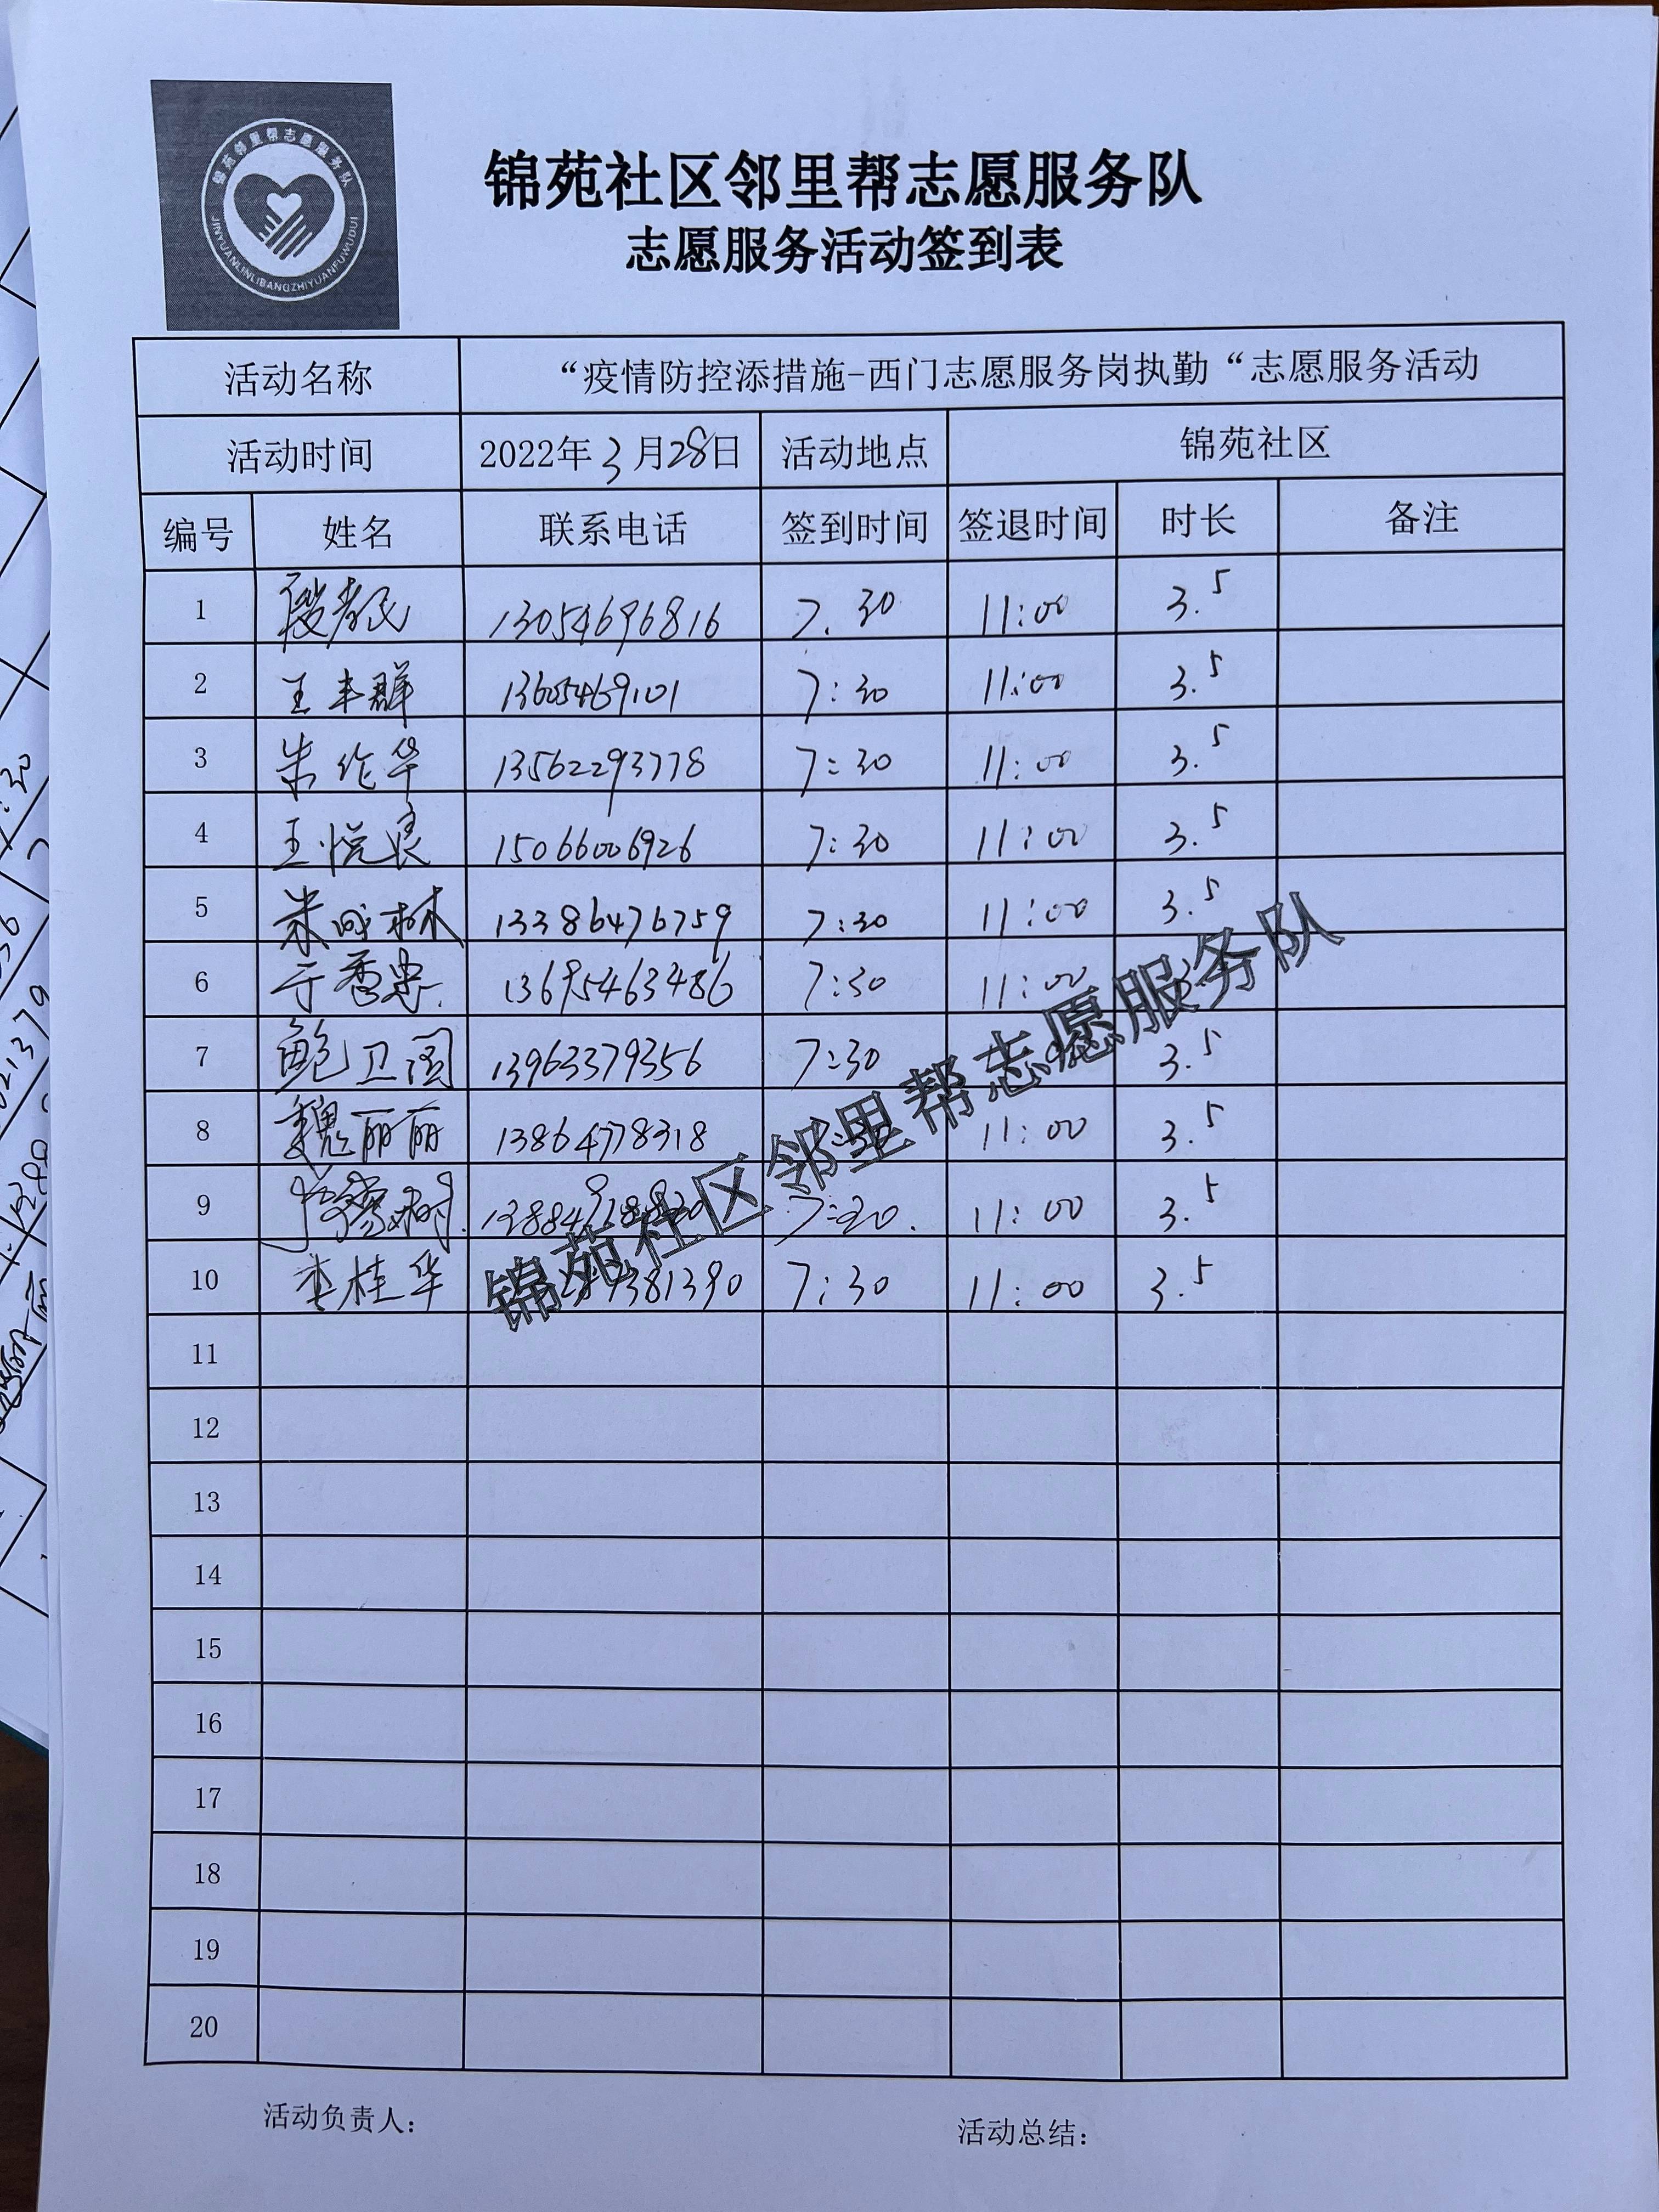 锦苑邻里帮志愿服务队
JINYUANLINLIBANGZHIYUANFUWUDUI
锦苑社区邻里帮志愿服务队
志愿服务活动签到表
活动名称 “疫情防控添措施-西门志愿服务岗执勤“志愿服务活动
活动时间 2022年3月28日 活动地点 锦苑社区
编号 姓名 联系电话 签到时间 签退时间 时长 备注
1 段孝民 13054696816 7.30 11:00 3.5
2 王丰群 13605469101 7:30 11:00 3.5
3 朱作华 13562293778 7:30 11:00 3.5
4 王悦良 15066006926 7:30 11:00 3.5
5 朱成林 13386476759 7:30 11:00 3.5
6 于香忠 13695463486 7:30 11:00
7 鲍卫国 13963379356 7:30 3.5
8 魏丽丽 13864778318 7:30 11:00 3.5
9 7:30. 11:00 3.5
10 李桂华 7:30 11:00 3.5
锦苑社区邻里帮志愿服务队
11
12
13
14
15
16
17
18
19
20
活动负责人: 活动总结: